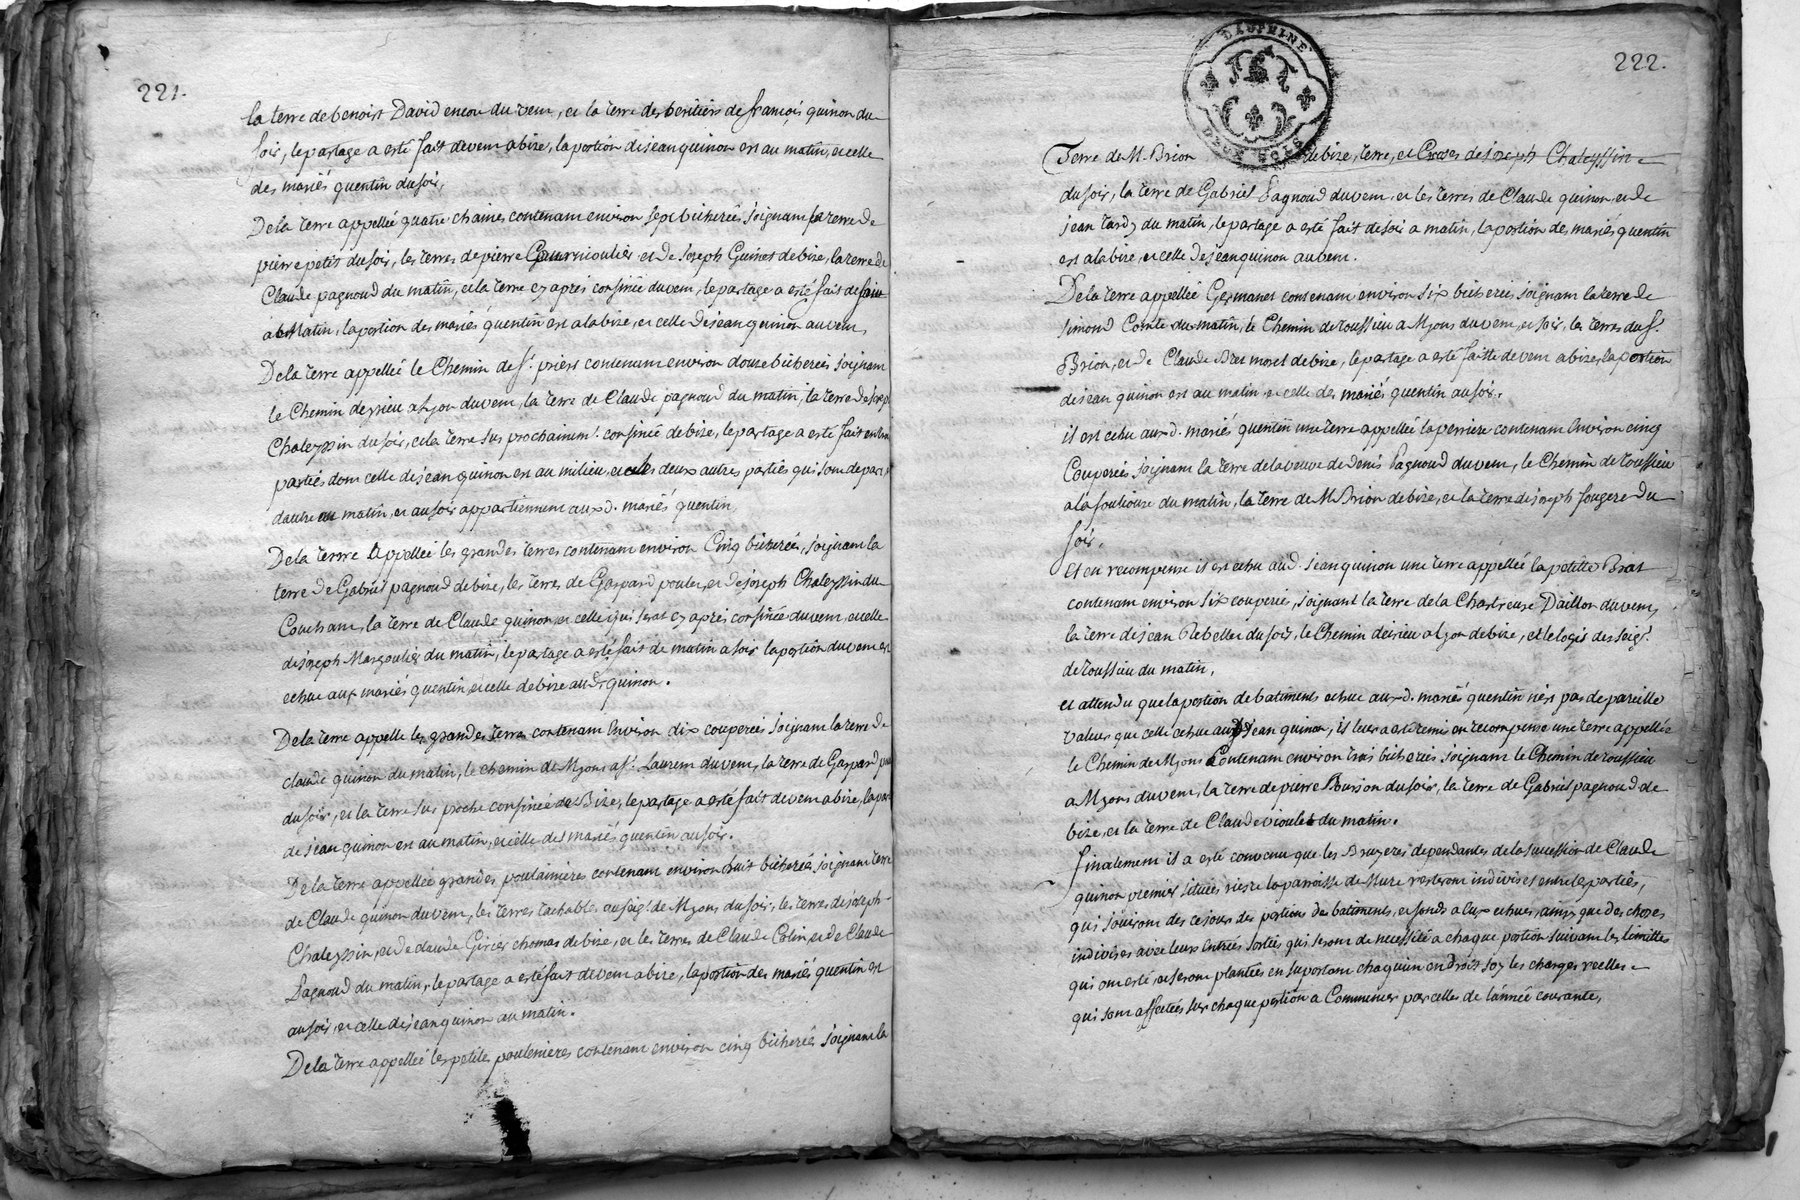 221.
la terre de benoist David encor du vent, et la terre des heritiers de françois quinon du
soir, le partage a esté fait devent abize, la portion de jean quinon est au matin, et celle
des mariés quentin du soir,
De la terre appellée quatre chaines contenant environ sept bicherées joignant la terre de
pierre petit du soir, les terres de pierre Gourricoulier et de Joseph Guinet debize, la terre de
Claude pagnoud du matin, et la terre cy apres confinée du vent, le partage a esté fait de soir
a Matin, la portion des mariés quentin est a labize, et celle de jean quinon au vent,
De la terre appellée le Chemin de st. priest contenant environ douze bicherées joignant
le Chemin deyrieu a Lyon du vent, la terre de Claude pagnoud du matin, la terre de Joseph
Chaleyssin du soir, et la terre sus prochainemt. confinée debize, le partage a esté fait en trois
parties dont celle de jean quinon est au milieu, et les deux autres parties qui sont de part et
dautre au matin, et au soir appartiennent aux d. mariés quentin,
De la terrre Appellée les grandes terres contenant environ Cinq bicherées, joignant la
terre de Gabriel pagnoud debize, les terres de Gaspard poulet, et de Joseph Chaleyssin du
Couchant, la terre de Claude quinon, et celle qui sera cy apres confinée du vent, et celle
de joseph Margoulier du matin, le partage a esté fait de matin a soir la portion du vent est
echue aux mariés quentin, et celle debize au d. quinon.
De la terre appelle les grandes terres contenant Environ dix couperées joignant la terre de
claude quinon du matin, le chemin de Myons a st. Laurent du vent, la terre de Gaspard
du soir, et la terre sus proche confinée de Bize, le partage a esté fait devent a bize, la por
de jean quinon est au matin, et celle des mariés quentin au soir.
De la terre appellée grandes poulainieres contenant environ huit bicherées joignant terre
de Claude quinon du vent, les terres tachables au seigr. de Myons du soir, les terres de joseph
Chaleyssin, et de claude Girier thomas debize, et les terres de Claude Colin, et de Claude
Pagnoud du matin, le partage a esté fait devent a bize, la portion des mariés quentin est
au soir, et celle de jean quinon au matin.
De la terre appellée les petites poulenieres contenant environ cinq bicherées joignant la
222.
DAUPHINE
DEUX SOLS
Terre de M. Brion debize, terre, et Croses de joseph Chaleyssin
du soir, la terre de Gabriel Pagnoud du vent, et les terres de Claude quinon, et de
jean tardy du matin, le partage a esté fait de soir a matin, la portion des mariés quentin
est a labize, et celle de jean quinon au vent.
De la terre appellée Germanet contenant environ six bicherées joignant la terre de
simond Comte du matin, le Chemin de toussieu a Myons du vent, et soir, les terres du sr.
Brion, et de Claude Bret morel debize, le partage a esté faitte devent a bize, la portion
de jean quinon est au matin, et celle des mariés quentin au soir.
il est echu aux d. mariés quentin une terre appellée la perriere contenant Environ cinq
Couperées, joignant la terre de la veuve de denis Pagnoud du vent, le Chemin de toussieu
a la fouliouse du matin, la terre de M. Brion debize, et la terre de joseph fougere du
soir.
et en recompense il est echu aud. jean quinon une terre appellée la petitte Brat
contenant environ six couperées, joignant la terre de la Chartreuse Daillon du vent,
la terre de jean Rebellet du soir, le Chemin deirieu a Lyon debize, et le logis des seigr.
de toussieu du matin,
et attendu que la portion de batiments echue aux d. mariés quentin nest pas de pareille
valeur que celle echue aud. Jean quinon, il leur a esté remis en recompense une terre appellée
le Chemin de Myons Contenant environ trois bicherées joignant le Chemin de toussieu
a Myons du vent, la terre de pierre Buisson du soir, la terre de Gabriel pagnoud de
bize, et la terre de Claude vioulet du matin.
finalement il a esté convenu que les Bruyeres dependantes de la succession de Claude
quinon premier situées riere la parroisse de Mure resteront indivises entre les parties,
qui jouiront des ce jour des portions de batiments, et fonds a eux echues, ainsy que des choses
indivises avec leurs Entrées sorties qui seront de necessité a chaque portion suivant les limittes
qui ont esté, ou seront plantées en suportant chaquun en droit soy les charges reelles
qui sont affectées sur chaque portion a Commencer par celles de lannée courante,